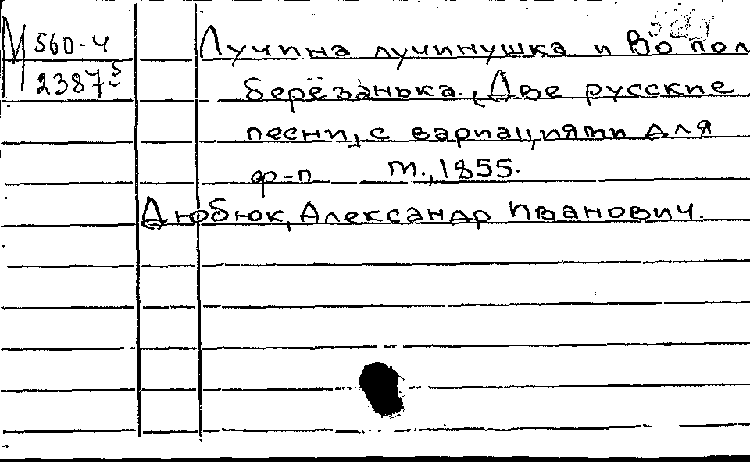 М 560-4 Лучина лучинушка и Во пол
23875 берёзанька. Две русские
песни, с вариациями для
ф-п М., 1855.
Дюбюк, Александр Иванович.